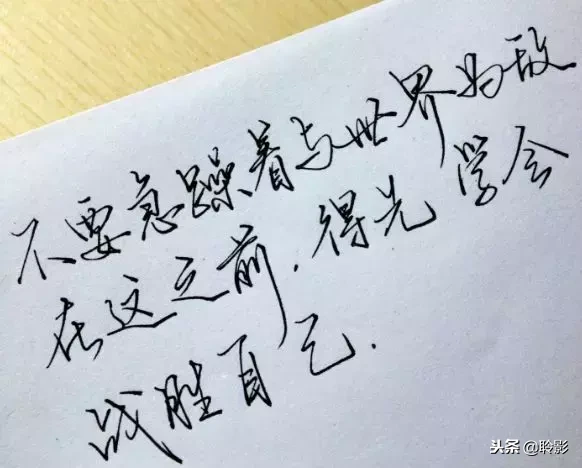 不要急躁着与世界为敌
在这之前.得先学会
战胜自己.
头条@聆影